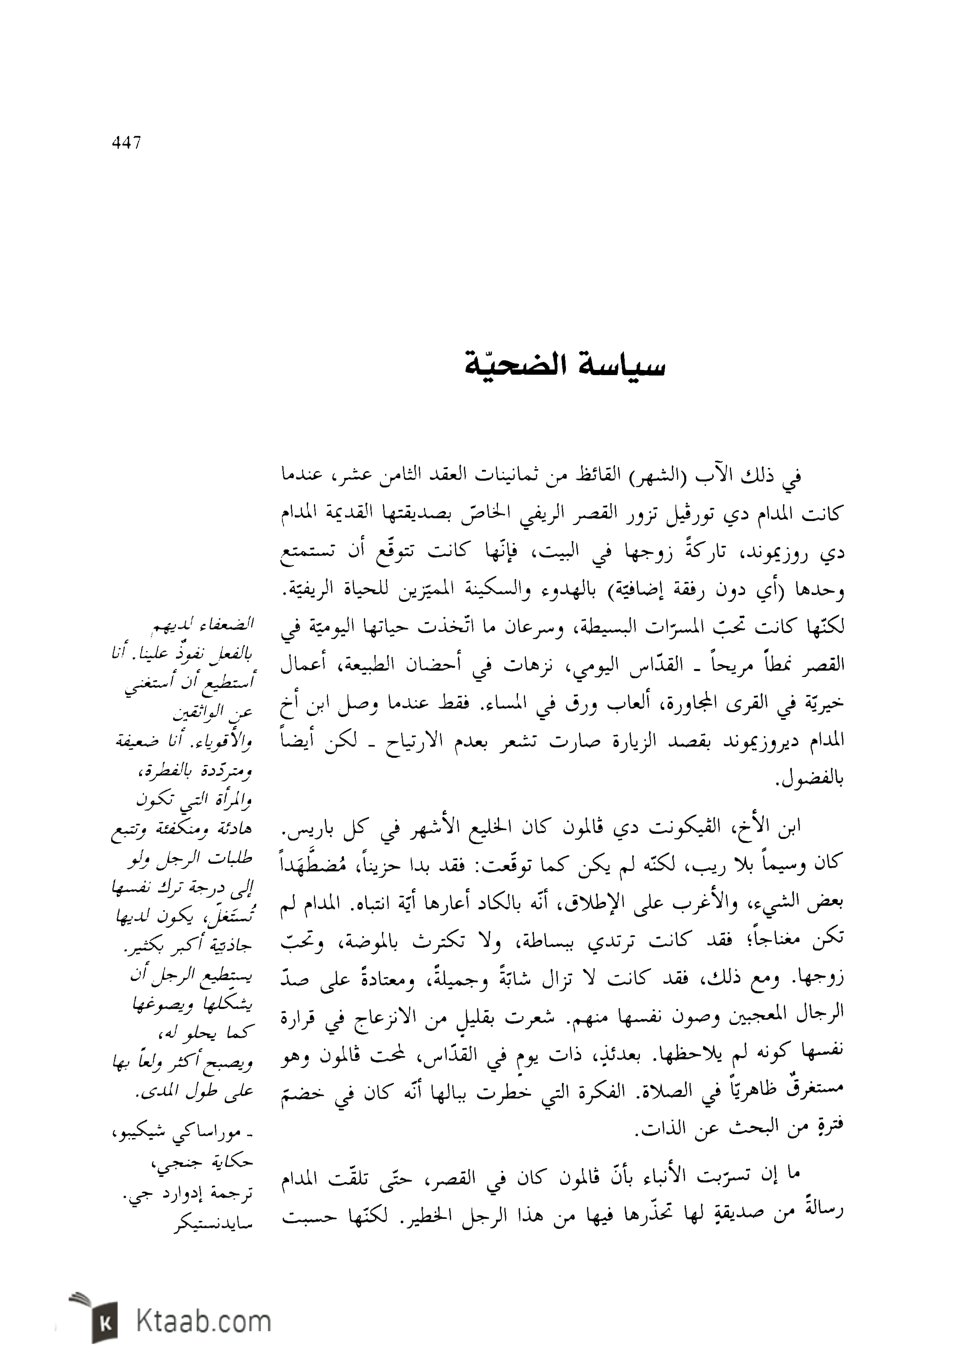 447
سياسة الضحيّة
في ذلك الآب (الشهر) القائظ من ثمانينات العقد الثامن عشر، عندما
كانت المدام دي تورڤيل تزور القصر الريفي الخاصّ بصديقتها القديمة المدام
دي روزيموند، تاركةً زوجها في البيت، فإنّها كانت تتوقّع أن تستمتع
وحدها (أي دون رفقة إضافيّة) بالهدوء والسكينة المميّزين للحياة الريفيّة.
لكنّها كانت تحبّ المسرّات البسيطة، وسرعان ما اتّخذت حياتها اليوميّة في
القصر نمطاً مريحاً ـ القدّاس اليومي، نزهات في أحضان الطبيعة، أعمال
خيريّة في القرى المجاورة، ألعاب ورق في المساء. فقط عندما وصل ابن أخ
المدام ديروزيموند بقصد الزيارة صارت تشعر بعدم الارتياح ـ لكن أيضاً
بالفضول.
ابن الأخ، الڤيكونت دي ڤالمون كان الخليع الأشهر في كل باريس.
كان وسيماً بلا ريب، لكنّه لم يكن كما توقّعت: فقد بدا حزيناً، مُضطَّهَداً
بعض الشيء، والأغرب على الإطلاق، أنّه بالكاد أعارها أيّة انتباه. المدام لم
تكن مغناجاً؛ فقد كانت ترتدي ببساطة، ولا تكترث بالموضة، وتحبّ
زوجها. ومع ذلك، فقد كانت لا تزال شابّةً وجميلةً، ومعتادةً على صدّ
الرجال المعجبين وصون نفسها منهم. شعرت بقليلٍ من الانزعاج في قرارة
نفسها كونه لم يلاحظها. بعدئذٍ، ذات يومٍ في القدّاس، لمحت ڤالمون وهو
مستغرقٌ ظاهريّاً في الصلاة. الفكرة التي خطرت ببالها أنّه كان في خضمّ
فترةٍ من البحث عن الذات.
ما إن تسرّبت الأنباء بأنّ ڤالمون كان في القصر، حتّى تلقّت المدام
رسالةً من صديقةٍ لها تحذّرها فيها من هذا الرجل الخطير. لكنّها حسبت
الضعفاء لديهم
بالفعل نفوذٌ علينا. أنا
أستطيع أن أستغني
عن الواثقين
والأقوياء. أنا ضعيفة
ومتردّدة بالفطرة،
والمرأة التي تكون
هادئة ومنكفئة وتتبع
طلبات الرجل ولو
إلى درجة ترك نفسها
تُستَغلّ، يكون لديها
جاذبيّة أكبر بكثير.
يستطيع الرجل أن
يشكّلها ويصوغها
كما يحلو له،
ويصبح أكثر ولعاً بها
على طول المدى.
ـ موراساكي شيكيبو،
حكاية جنجي،
ترجمة إدوارد جي.
سايدنستيكر
Ktaab.com